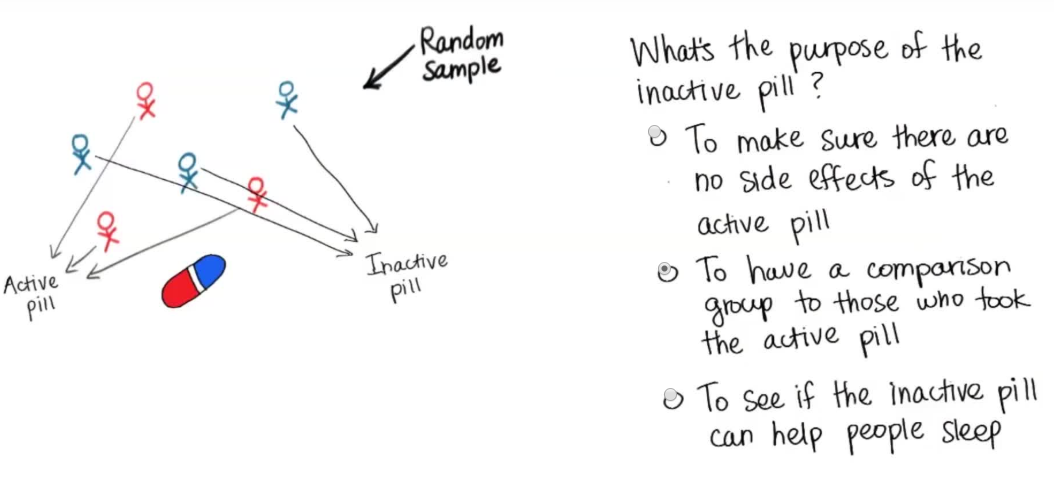 Random
Sample
Active
pill
Inactive
pill
What's the purpose of the
inactive pill ?
To make sure there are
no side effects of the
active pill
To have a comparison
group to those who took
the active pill
To see if the inactive pill
can help people sleep